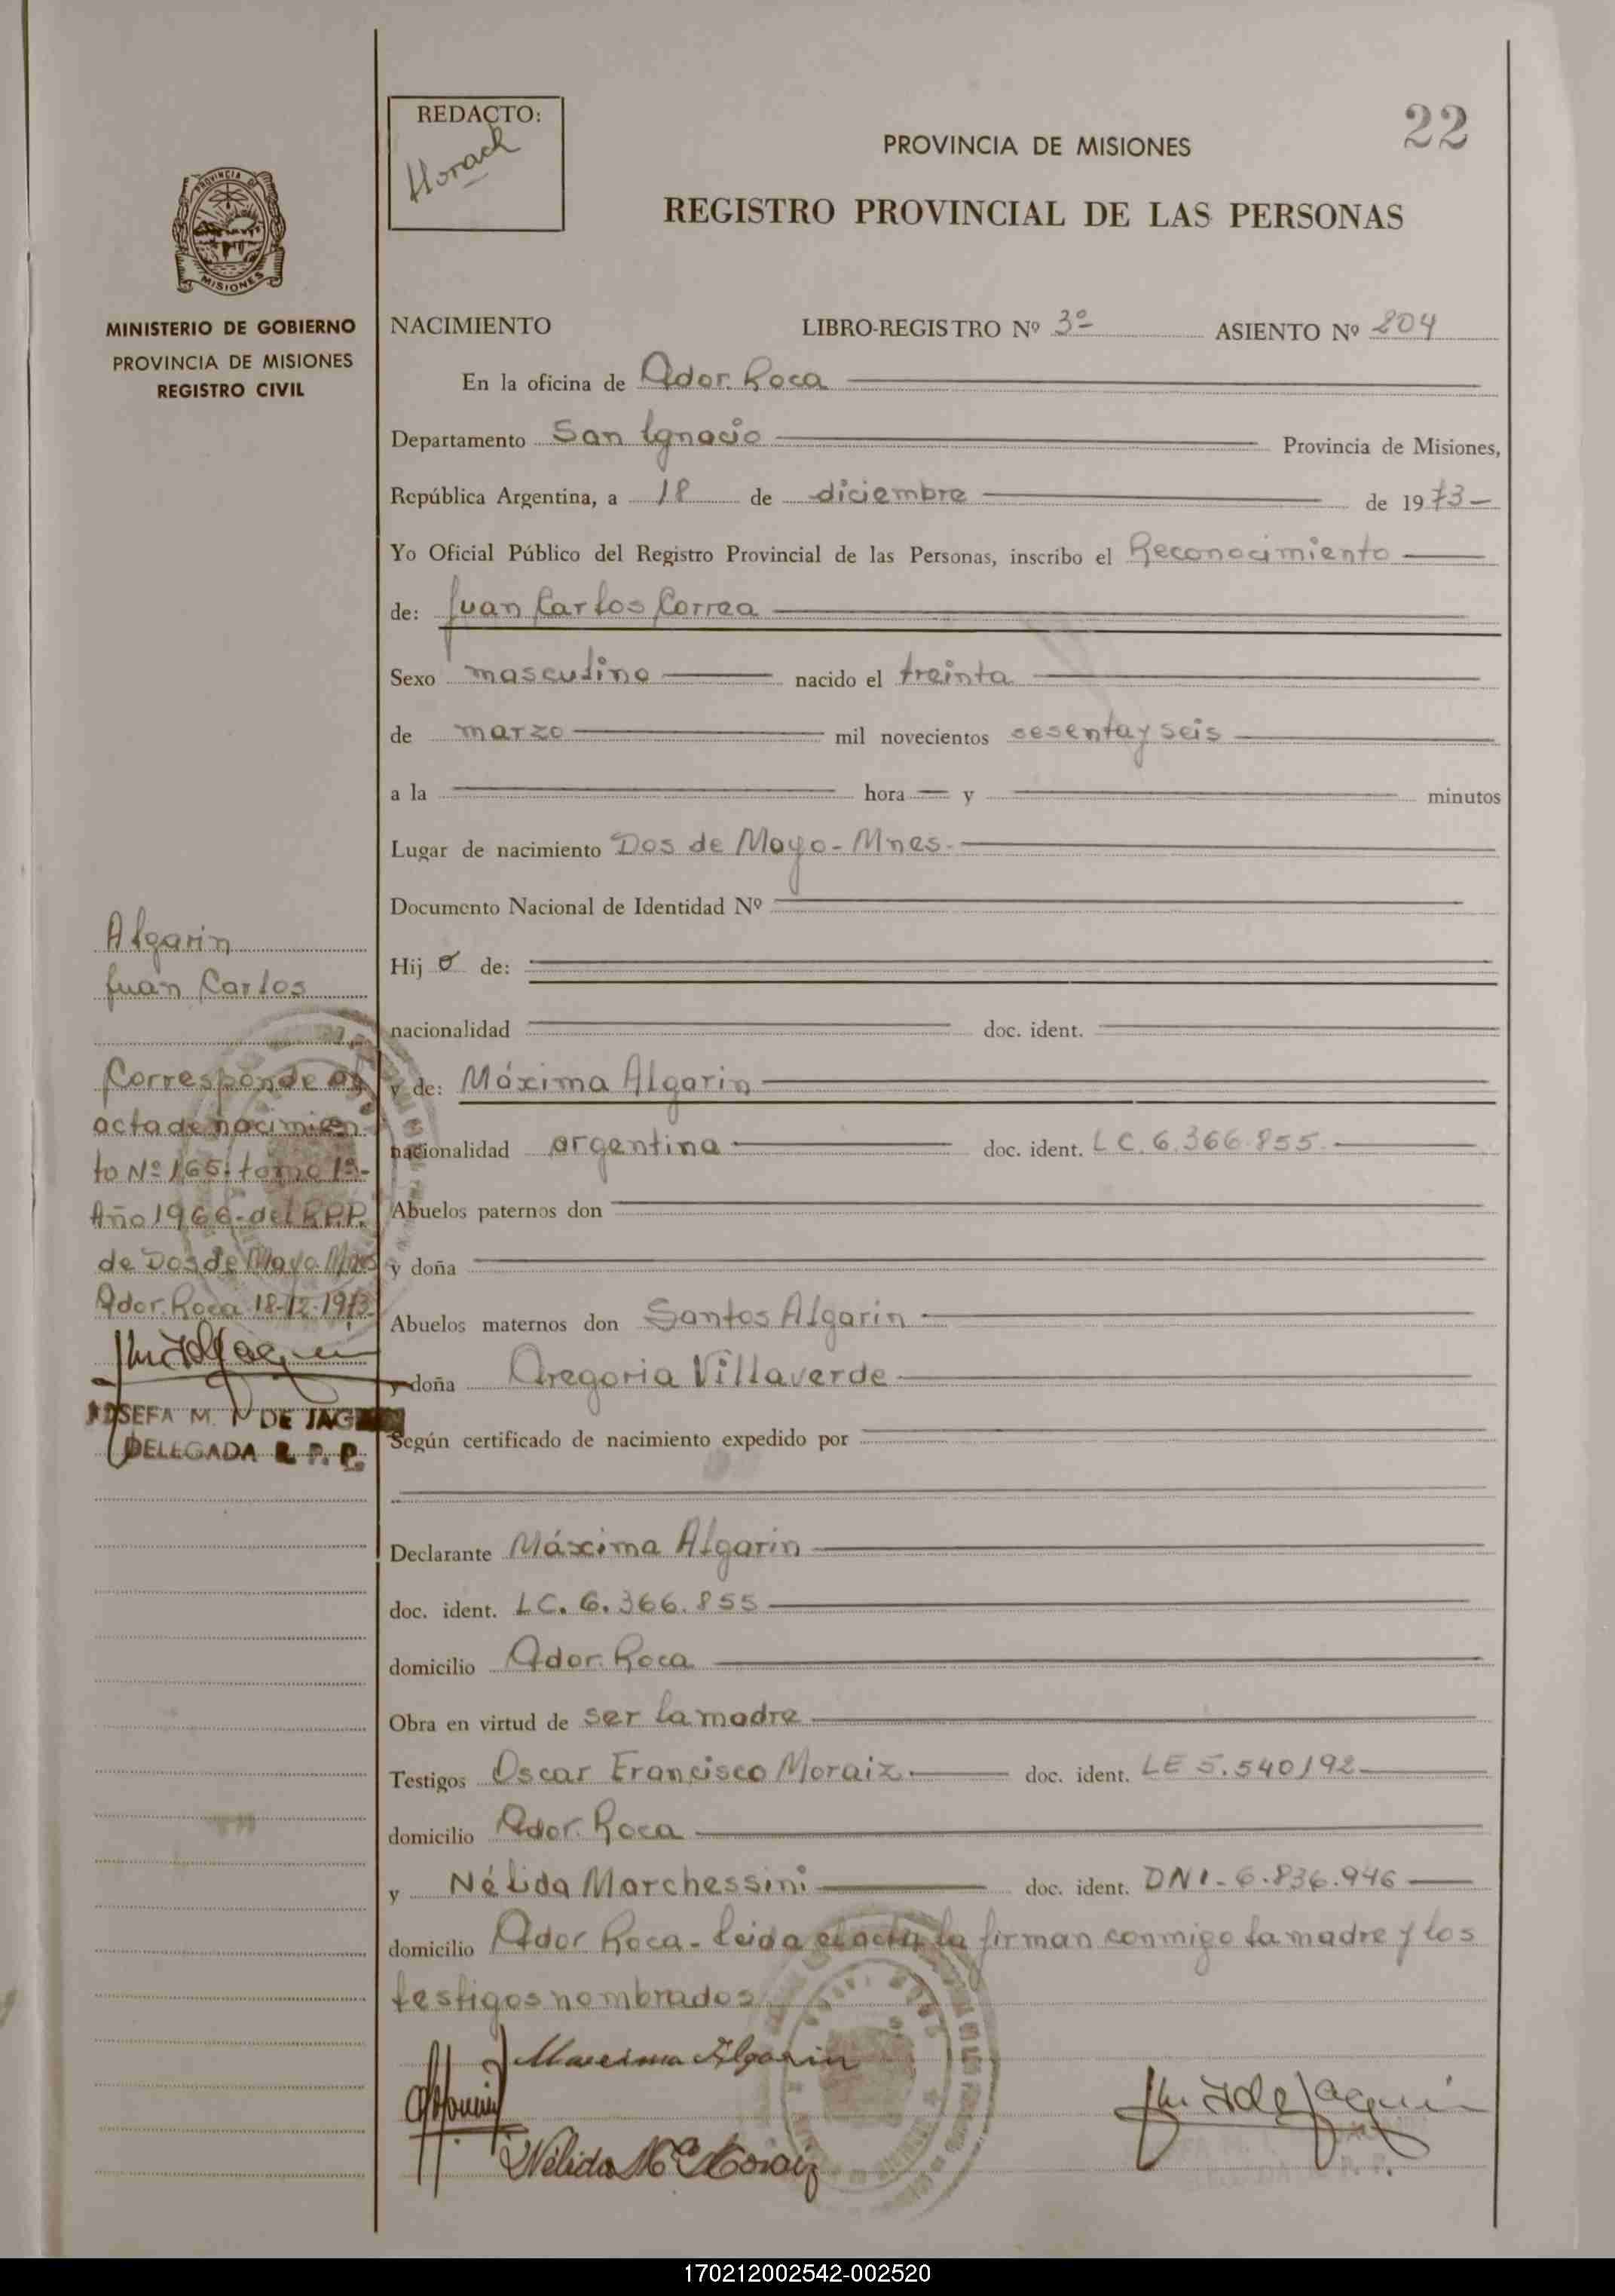 22
REDACTO:
Horach
PROVINCIA DE MISIONES
REGISTRO PROVINCIAL DE LAS PERSONAS
PROVINCIA DE
MISIONES
MINISTERIO DE GOBIERNO
PROVINCIA DE MISIONES
REGISTRO CIVIL
NACIMIENTO LIBRO-REGISTRO Nº 3º ASIENTO Nº 204
En la oficina de Ador. Roca
Departamento San Ignacio Provincia de Misiones,
República Argentina, a 18 de diciembre de 1973-
Yo Oficial Público del Registro Provincial de las Personas, inscribo el Reconocimiento
de: Juan Carlos Correa
Sexo masculino nacido el treinta
de marzo mil novecientos sesenta y seis
a la hora y minutos
Lugar de nacimiento Dos de Mayo - Mnes.
Documento Nacional de Identidad Nº
Hij o de:
nacionalidad doc. ident.
y de: Máxima Algarin
nacionalidad argentina doc. ident. LC. 6.366.855
Abuelos paternos don
y doña
Abuelos maternos don Santos Algarin
y doña Gregoria Villaverde
Según certificado de nacimiento expedido por
Declarante Máxima Algarin
doc. ident. LC. 6.366.855
domicilio Ador. Roca
Obra en virtud de ser la madre
Testigos Oscar Francisco Moraiz doc. ident. LE 5.540192
domicilio Ador. Roca
y Nélida Marchessini doc. ident. DNI - 6.836.946
domicilio Ador Roca - leida el acta la firman conmigo la madre y los
testigos nombrados
Algarin
Juan Carlos
Corresponde al
acta de nacimien
to Nº 165. tomo 1º-
Año 1966 - del R.P.P.
de Dos de Mayo Mnes
Ador. Roca 18-12-1973
JOSEFA M. DE
DELEGADA R. P. P.
Maxima Algarin
Nélida M. de Moraiz
170212002542-002520